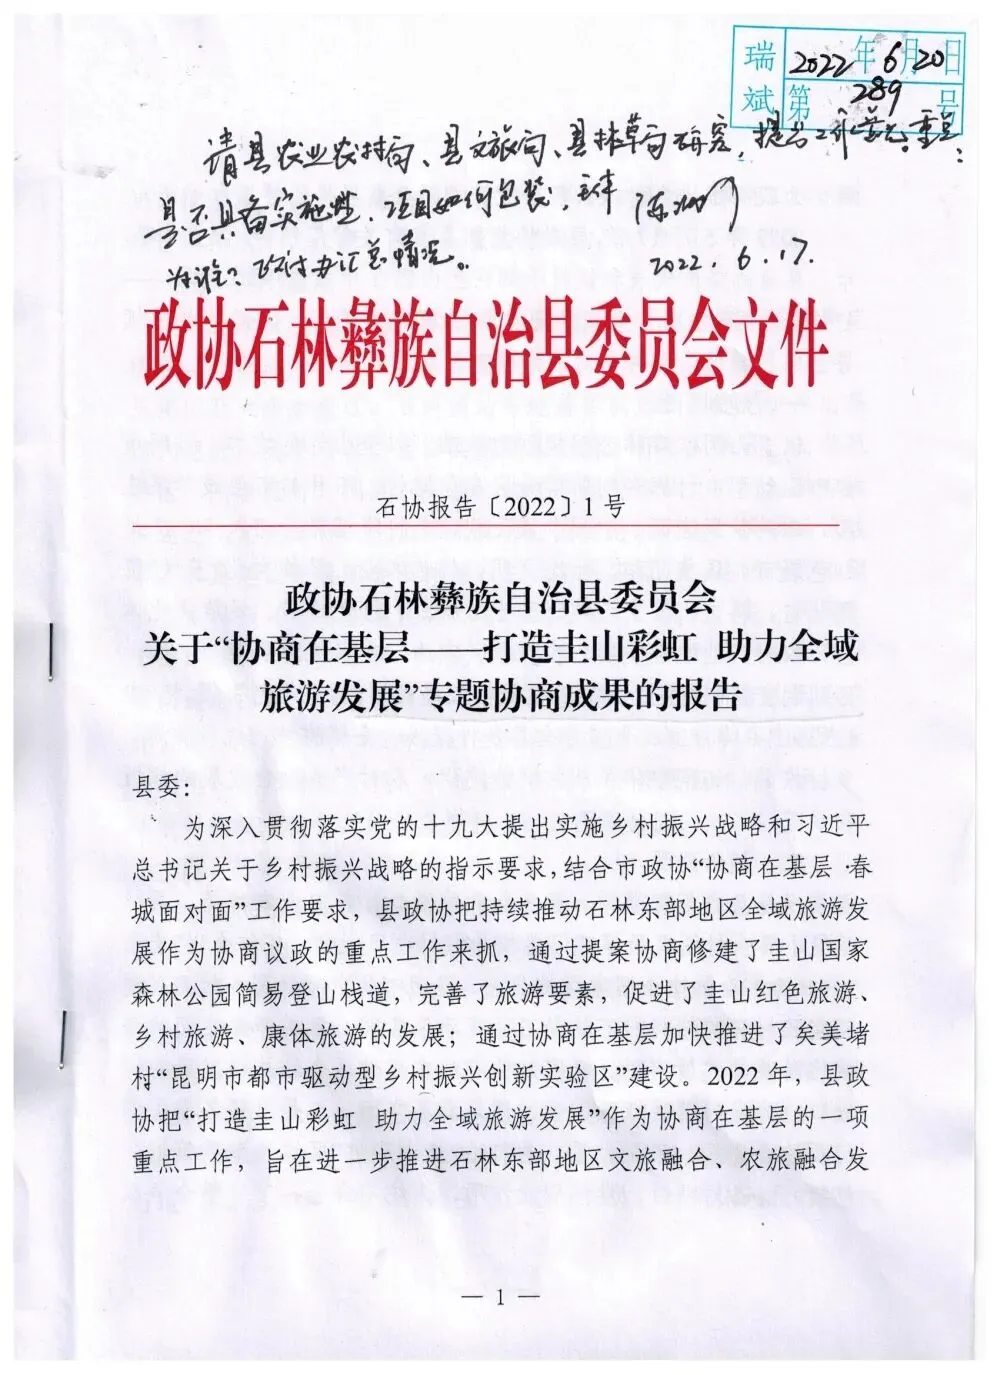 瑞斌 2022年6月20日
第289号
请县农业农村局、县文旅局、县林草局研究,提出工作意见。重点:
是否具备实施性,项目如何包装,主体
为谁?政府办汇总情况。
2022.6.17.
政协石林彝族自治县委员会文件
石协报告〔2022〕1号
政协石林彝族自治县委员会
关于“协商在基层——打造圭山彩虹 助力全域
旅游发展”专题协商成果的报告
县委:
为深入贯彻落实党的十九大提出实施乡村振兴战略和习近平
总书记关于乡村振兴战略的指示要求,结合市政协“协商在基层·春
城面对面”工作要求,县政协把持续推动石林东部地区全域旅游发
展作为协商议政的重点工作来抓,通过提案协商修建了圭山国家
森林公园简易登山栈道,完善了旅游要素,促进了圭山红色旅游、
乡村旅游、康体旅游的发展;通过协商在基层加快推进了矣美堵
村“昆明市都市驱动型乡村振兴创新实验区”建设。2022年,县政
协把“打造圭山彩虹 助力全域旅游发展”作为协商在基层的一项
重点工作,旨在进一步推进石林东部地区文旅融合、农旅融合发
— 1 —